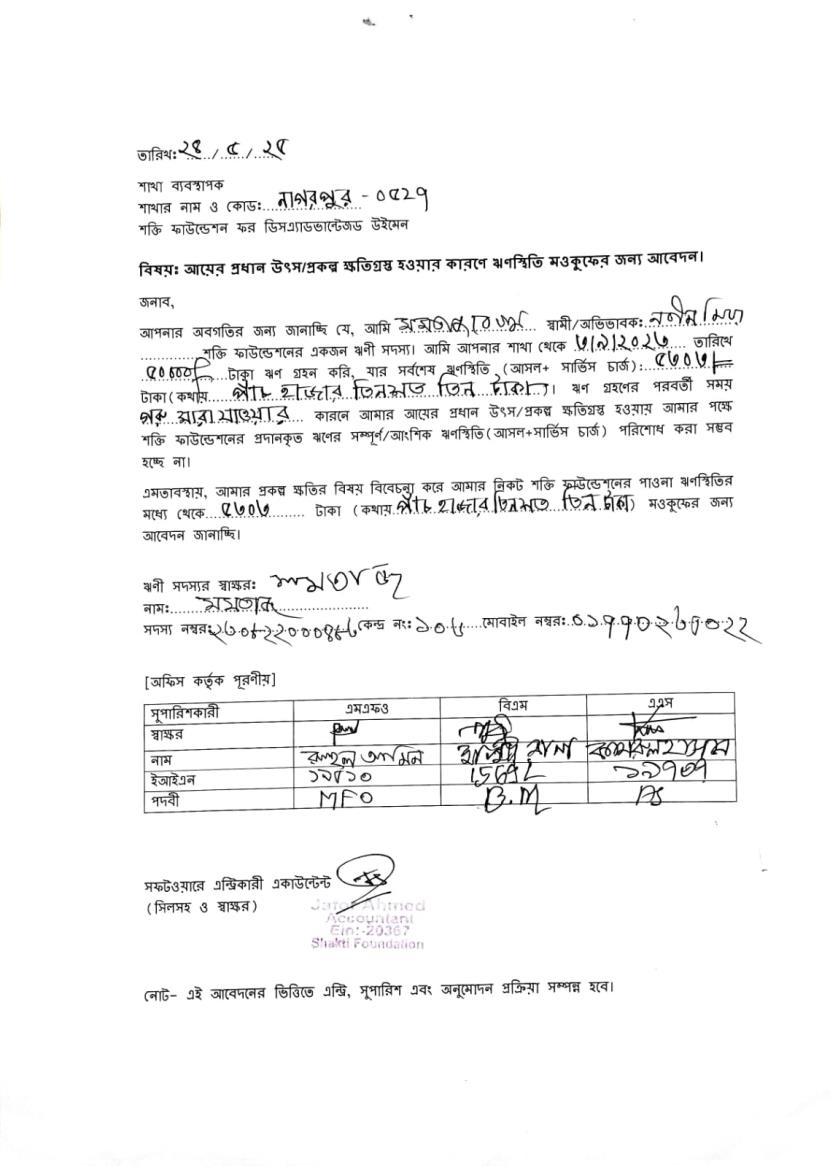 তারিখঃ ২৪ / ৫ / ২৫
শাখা ব্যবস্থাপক
শাখার নাম ও কোডঃ নাগরপুর - ০৫২৭
শক্তি ফাউন্ডেশন ফর ডিসএ্যাডভান্টেজড উইমেন
বিষয়ঃ আয়ের প্রধান উৎস/প্রকল্প ক্ষতিগ্রস্থ হওয়ার কারণে ঋণস্থিতি মওকুফের জন্য আবেদন।
জনাব,
আপনার অবগতির জন্য জানাচ্ছি যে, আমি মমতাজ বেগম স্বামী/অভিভাবকঃ
শক্তি ফাউন্ডেশনের একজন ঋণী সদস্য। আমি আপনার শাখা থেকে তারিখে
৫০০০০/- টাকা ঋণ গ্রহন করি, যার সর্বশেষ ঋণস্থিতি (আসল+ সার্ভিস চার্জ): ৫৩০৩/-
টাকা (কথায় পাঁচ হাজার তিনশত তিন টাকা)। ঋণ গ্রহণের পরবর্তী সময়
গরু মারা যাওয়ার কারনে আমার আয়ের প্রধান উৎস/প্রকল্প ক্ষতিগ্রস্থ হওয়ায় আমার পক্ষে
শক্তি ফাউন্ডেশনের প্রদানকৃত ঋণের সম্পূর্ণ/আংশিক ঋণস্থিতি(আসল+সার্ভিস চার্জ) পরিশোধ করা সম্ভব
হচ্ছে না।
এমতাবস্থায়, আমার প্রকল্প ক্ষতির বিষয় বিবেচনা করে আমার নিকট শক্তি ফাউন্ডেশনের পাওনা ঋণস্থিতির
মধ্যে থেকে ৫৩০৩ টাকা (কথায় পাঁচ হাজার তিনশত তিন টাকা) মওকুফের জন্য
আবেদন জানাচ্ছি।
ঋণী সদস্যর স্বাক্ষরঃ মমতাজ
নাম: মমতাজ
সদস্য নম্বরঃ কেন্দ্র নংঃ মোবাইল নম্বরঃ
[অফিস কর্তৃক পূরণীয়]
সুপারিশকারী এমএফও বিএম এএস
স্বাক্ষর
নাম রুহুল আমিন কামরুল হাসান
ইআইএন
পদবী MFO B.M AS
সফটওয়ারে এন্ট্রিকারী একাউন্টেন্ট
(সিলসহ ও স্বাক্ষর)
Ahmed
Accountant
Ein:-20367
Shakti Foundation
নোট- এই আবেদনের ভিত্তিতে এন্ট্রি, সুপারিশ এবং অনুমোদন প্রক্রিয়া সম্পন্ন হবে।